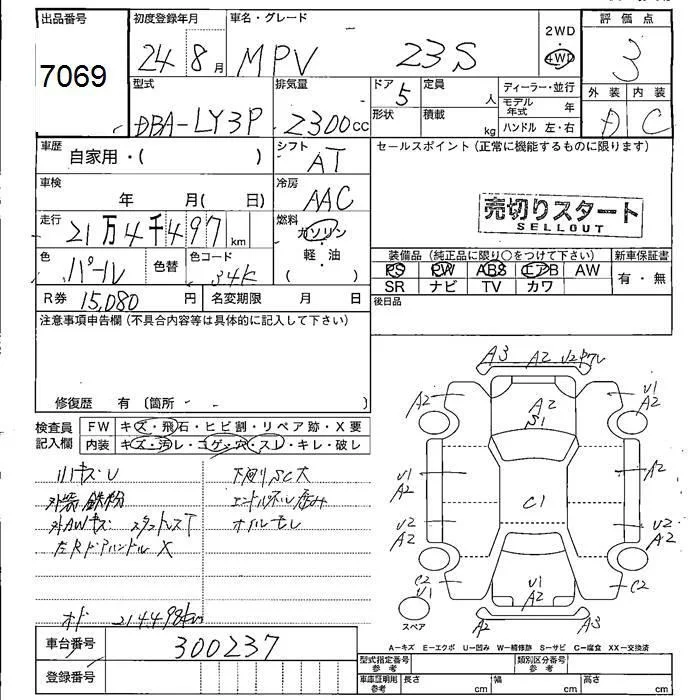 出品番号 初度登録年月 車名・グレード 2WD 評価点
7069 24年8月 MPV 23S 4WD 3
型式 排気量 ドア 5 定員 人 ディーラー・並行 外装 内装
DBA-LY3P 2300cc 形状 積載 kg モデル年式 年 A C
ハンドル 左・右
車歴 自家用・( ) シフト AT セールスポイント(正常に機能するものに限ります)
車検 年 月( 日) 冷房 AAC
売切りスタート
SELLOUT
走行 21万4千497km 燃料 ガソリン・軽・油( )
装備品(純正品に限り○をつけて下さい) 新車保証書
色 パール 色替 色コード 34K
PS PW ABS エアB AW 有・無
SR ナビ TV カワ
R券 15,080円 名変期限 月 日 後日品
注意事項申告欄(不具合内容等は具体的に記入して下さい)
修復歴 有 〔箇所 ・ 〕
検査員記入欄 FW キズ・飛石・ヒビ割・リペア跡・X要
内装 キズ・汚レ・コゲ・穴・スレ・キレ・破レ
ハリキズU 下回りSC大
外装鉄粉
外AWキズ スタットレスT オイルモレ
左RドアハンドルX
オド 214498km
A3 A2
A2 A2 U1 A2
S1
U1 A2 A2
C1
U2 A2 U2 A2
C2 U1 U1 A2 C2
スペア A2 A3
A−キズ E−エクボ U−凹み W−補修跡 S−サビ C−腐食 XX−交換済
車台番号 300237
登録番号
型式指定番号 参考 類別区分番号 参考
車庫証明用 参考 長さ cm 幅 cm 高さ cm